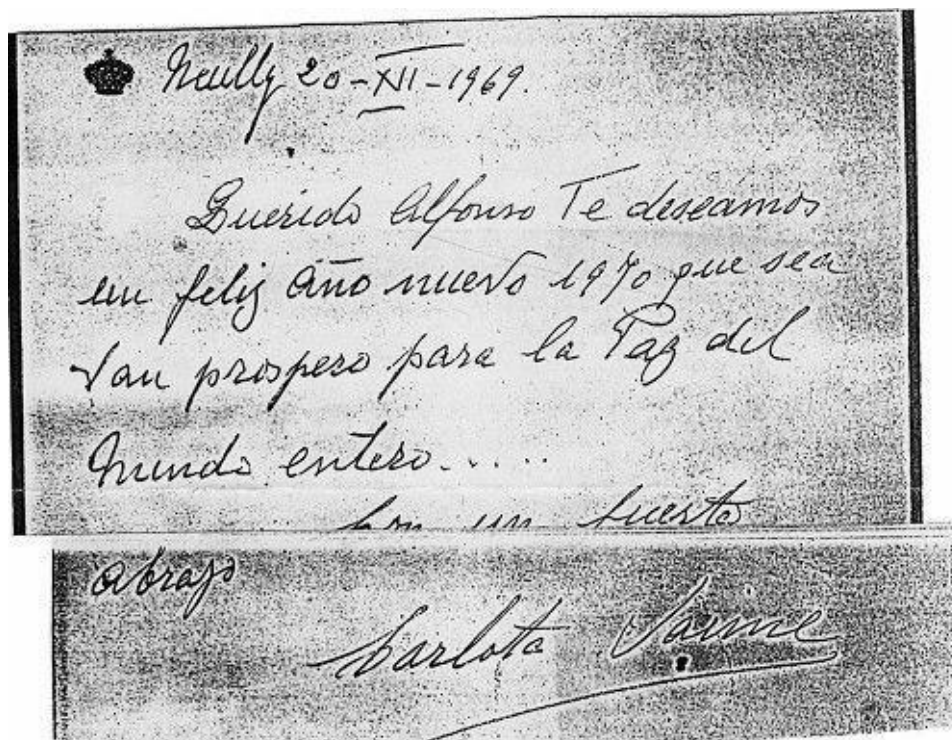 Neuilly 20-XII-1969.
Querido Alfonso Te deseamos
un feliz año nuevo 1970 que sea
tan prospero para la Paz del
Mundo entero.....
Con un fuerte
abrazo
Carlota Jaime